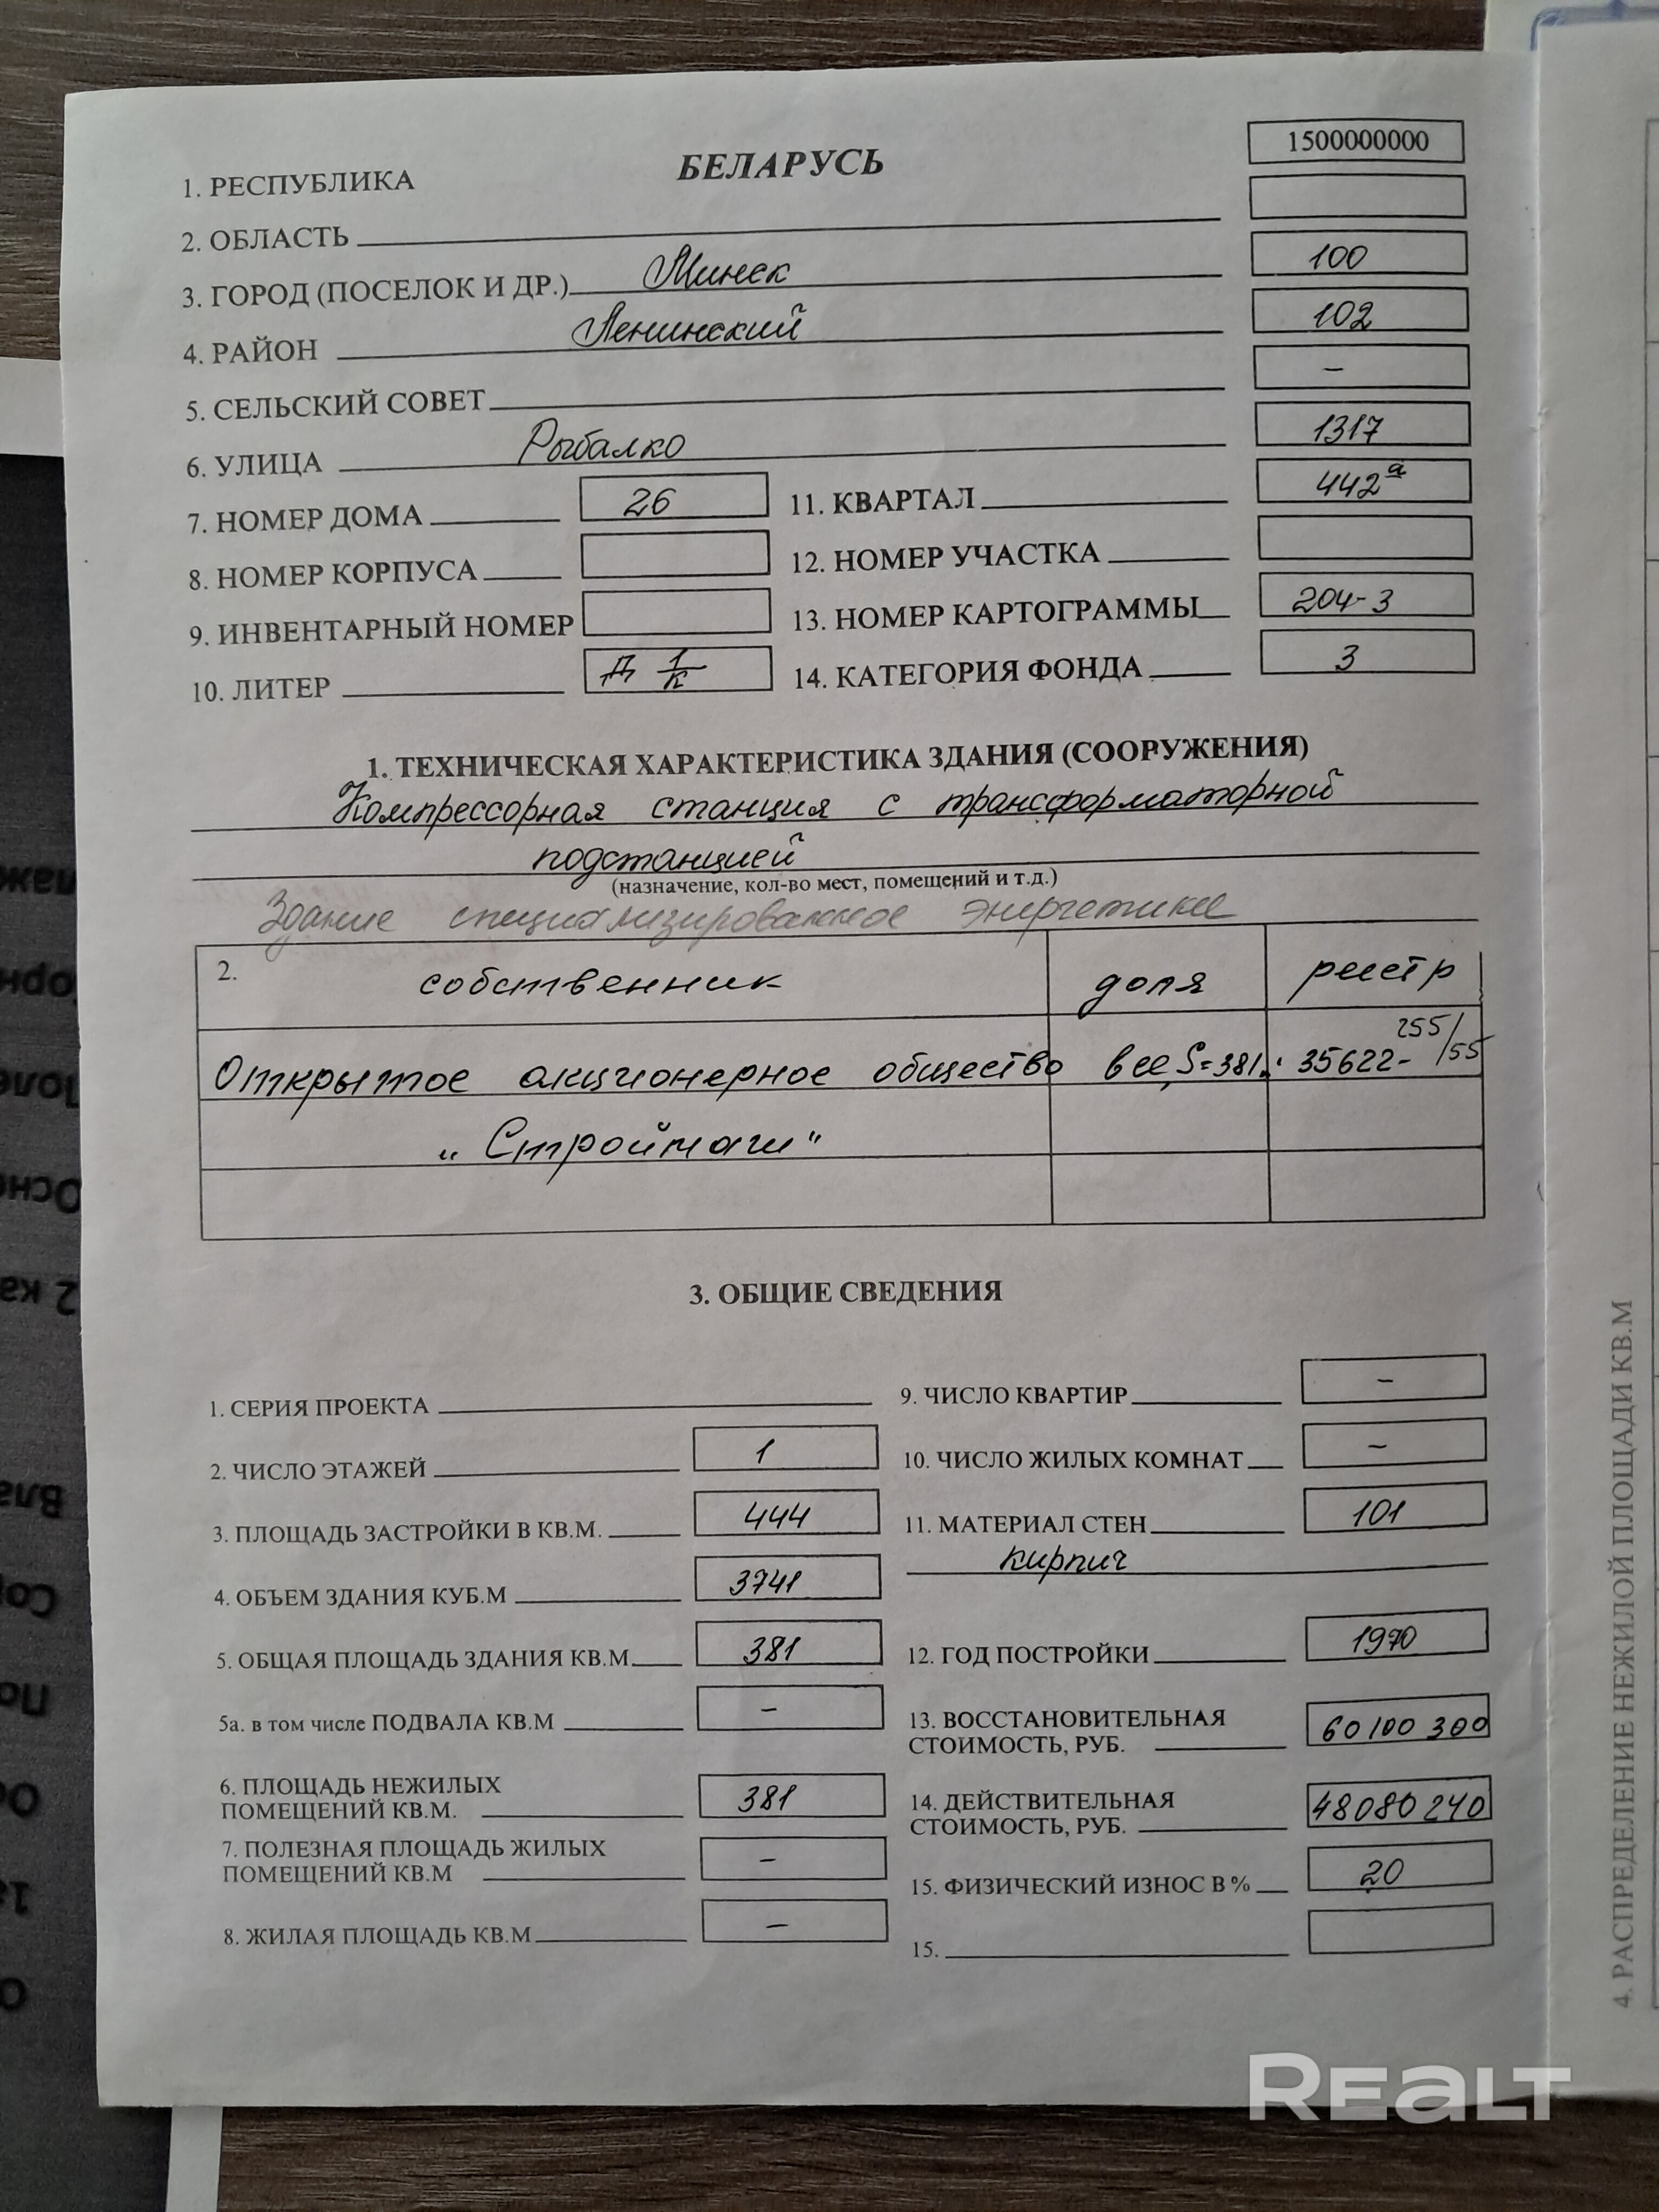 1. РЕСПУБЛИКА БЕЛАРУСЬ 1500000000
2. ОБЛАСТЬ
3. ГОРОД (ПОСЕЛОК И ДР.) Минск 100
4. РАЙОН Ленинский 102
5. СЕЛЬСКИЙ СОВЕТ –
6. УЛИЦА Рыбалко 1317
7. НОМЕР ДОМА 26 11. КВАРТАЛ 442а
8. НОМЕР КОРПУСА 12. НОМЕР УЧАСТКА
9. ИНВЕНТАРНЫЙ НОМЕР 13. НОМЕР КАРТОГРАММЫ 204-3
10. ЛИТЕР Д 1/к 14. КАТЕГОРИЯ ФОНДА 3
1. ТЕХНИЧЕСКАЯ ХАРАКТЕРИСТИКА ЗДАНИЯ (СООРУЖЕНИЯ)
Компрессорная станция с трансформаторной
подстанцией
(назначение, кол-во мест, помещений и т.д.)
Здание специализированное энергетики
2. собственник доля реестр
Открытое акционерное общество все S=381 35622- 255/55
„Строймаш"
3. ОБЩИЕ СВЕДЕНИЯ
1. СЕРИЯ ПРОЕКТА 9. ЧИСЛО КВАРТИР –
2. ЧИСЛО ЭТАЖЕЙ 1 10. ЧИСЛО ЖИЛЫХ КОМНАТ –
3. ПЛОЩАДЬ ЗАСТРОЙКИ В КВ.М. 444 11. МАТЕРИАЛ СТЕН 101
кирпич
4. ОБЪЕМ ЗДАНИЯ КУБ.М 3741
5. ОБЩАЯ ПЛОЩАДЬ ЗДАНИЯ КВ.М 381 12. ГОД ПОСТРОЙКИ 1970
5а. в том числе ПОДВАЛА КВ.М – 13. ВОССТАНОВИТЕЛЬНАЯ
СТОИМОСТЬ, РУБ. 60100300
6. ПЛОЩАДЬ НЕЖИЛЫХ
ПОМЕЩЕНИЙ КВ.М. 381
14. ДЕЙСТВИТЕЛЬНАЯ
СТОИМОСТЬ, РУБ. 48080240
7. ПОЛЕЗНАЯ ПЛОЩАДЬ ЖИЛЫХ
ПОМЕЩЕНИЙ КВ.М –
15. ФИЗИЧЕСКИЙ ИЗНОС В % 20
8. ЖИЛАЯ ПЛОЩАДЬ КВ.М – 15.
4. РАСПРЕДЕЛЕНИЕ НЕЖИЛОЙ ПЛОЩАДИ КВ.М
REALT